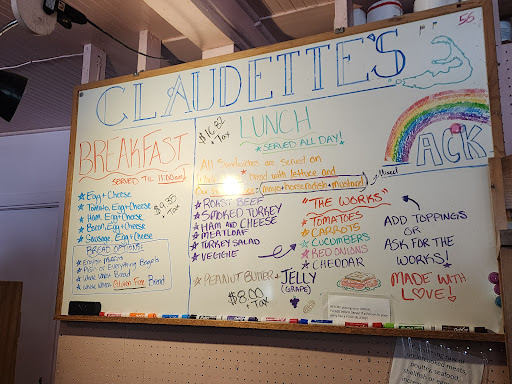 CLAUDETTE'S
BREAKFAST
SERVED 'TIL 11:00am!
★ Egg + Cheese
★ Tomato, Egg + Cheese
★ Ham, Egg + Cheese
★ Beef, Egg + Cheese
★ Sausage, Egg + Cheese
+ Tax
BREAD OPTIONS:
★ English Muffin
★ Plain or Everything Bagels
★ Whole Wheat Bread
★ Gluten Free Bread
$16.82
+ Tax
LUNCH
★ SERVED ALL DAY!
All Sandwiches are served on
bread with lettuce and
Our (mayo + horseradish + mustard) Mixed
★ ROAST BEEF
★ SMOKED TURKEY
★ HAM AND CHEESE
★ MEATLOAF
★ TURKEY SALAD
★ VEGGIE
★ PEANUT BUTTER + JELLY
(GRAPE)
$8.00
+ Tax
"THE WORKS"
★ TOMATOES
★ CARROTS
★ CUCUMBERS
★ RED ONIONS
★ CHEDDAR
ACK
ADD TOPPINGS
OR
ASK FOR THE
WORKS!
MADE WITH
LOVE!
meats
poultry, seafood